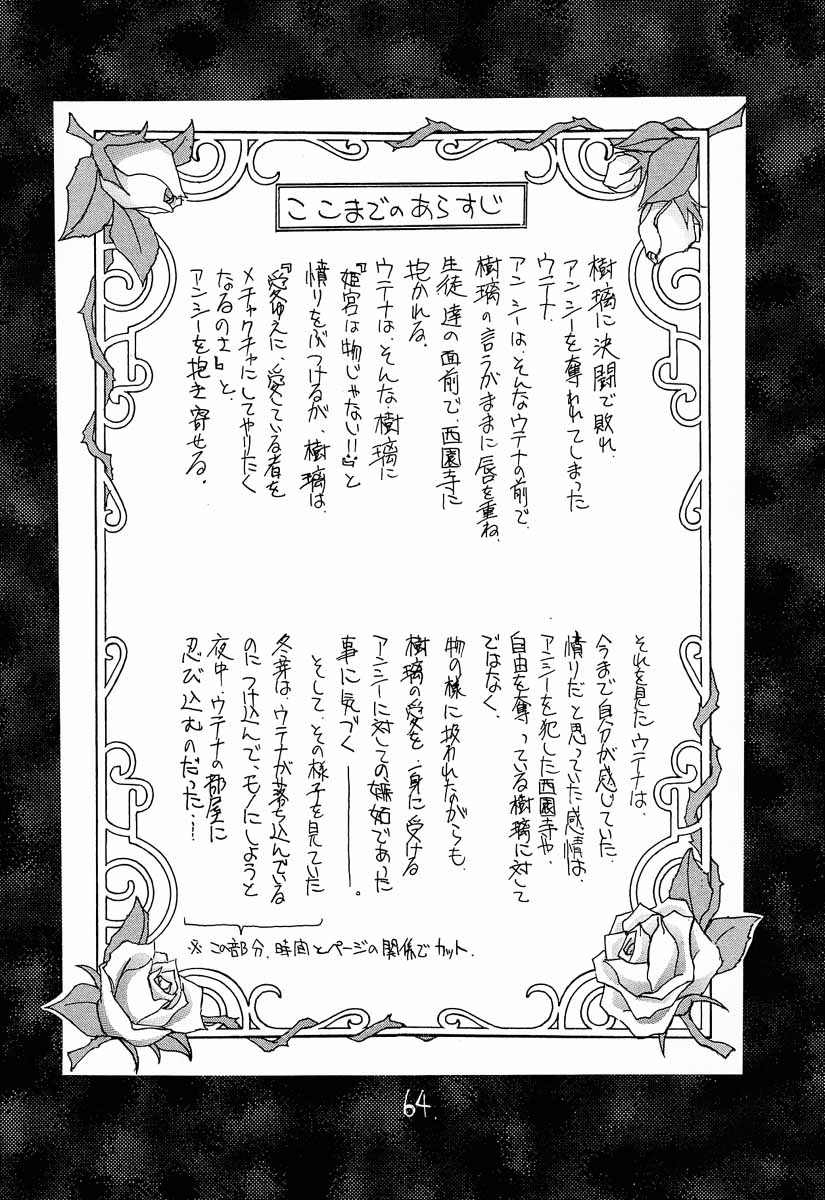 ここまでのあらすじ
樹璃に決闘で敗れ、
アンシーを奪われてしまった
ウテナ。
アンシーは、そんなウテナの前で、
樹璃の言うがままに唇を重ね、
生徒達の面前で、西園寺に
抱かれる。
ウテナは、そんな、樹璃に
『姫宮は物じゃない!!』と
憤りをぶつけるが、樹璃は、
『愛ゆえに、愛している者を
メチャクチャにしてやりたく
なるのさ』と、
アンシーを抱き寄せる。
それを見たウテナは、
今まで自分が感じていた、
憤りだと思っていた感情は、
アンシーを犯した西園寺や、
自由を奪っている樹璃に対して
ではなく、
物の様に扱われながらも、
樹璃の愛を一身に受ける
アンシーに対しての嫉妬であった
事に気づく———。
そして、その様子を見ていた
冬芽は、ウテナが落ち込んでいる
のにつけ込んで、モノにしようと
夜中、ウテナの部屋に
忍び込むのだった…。
※この部分、時間とページの関係でカット。
64.